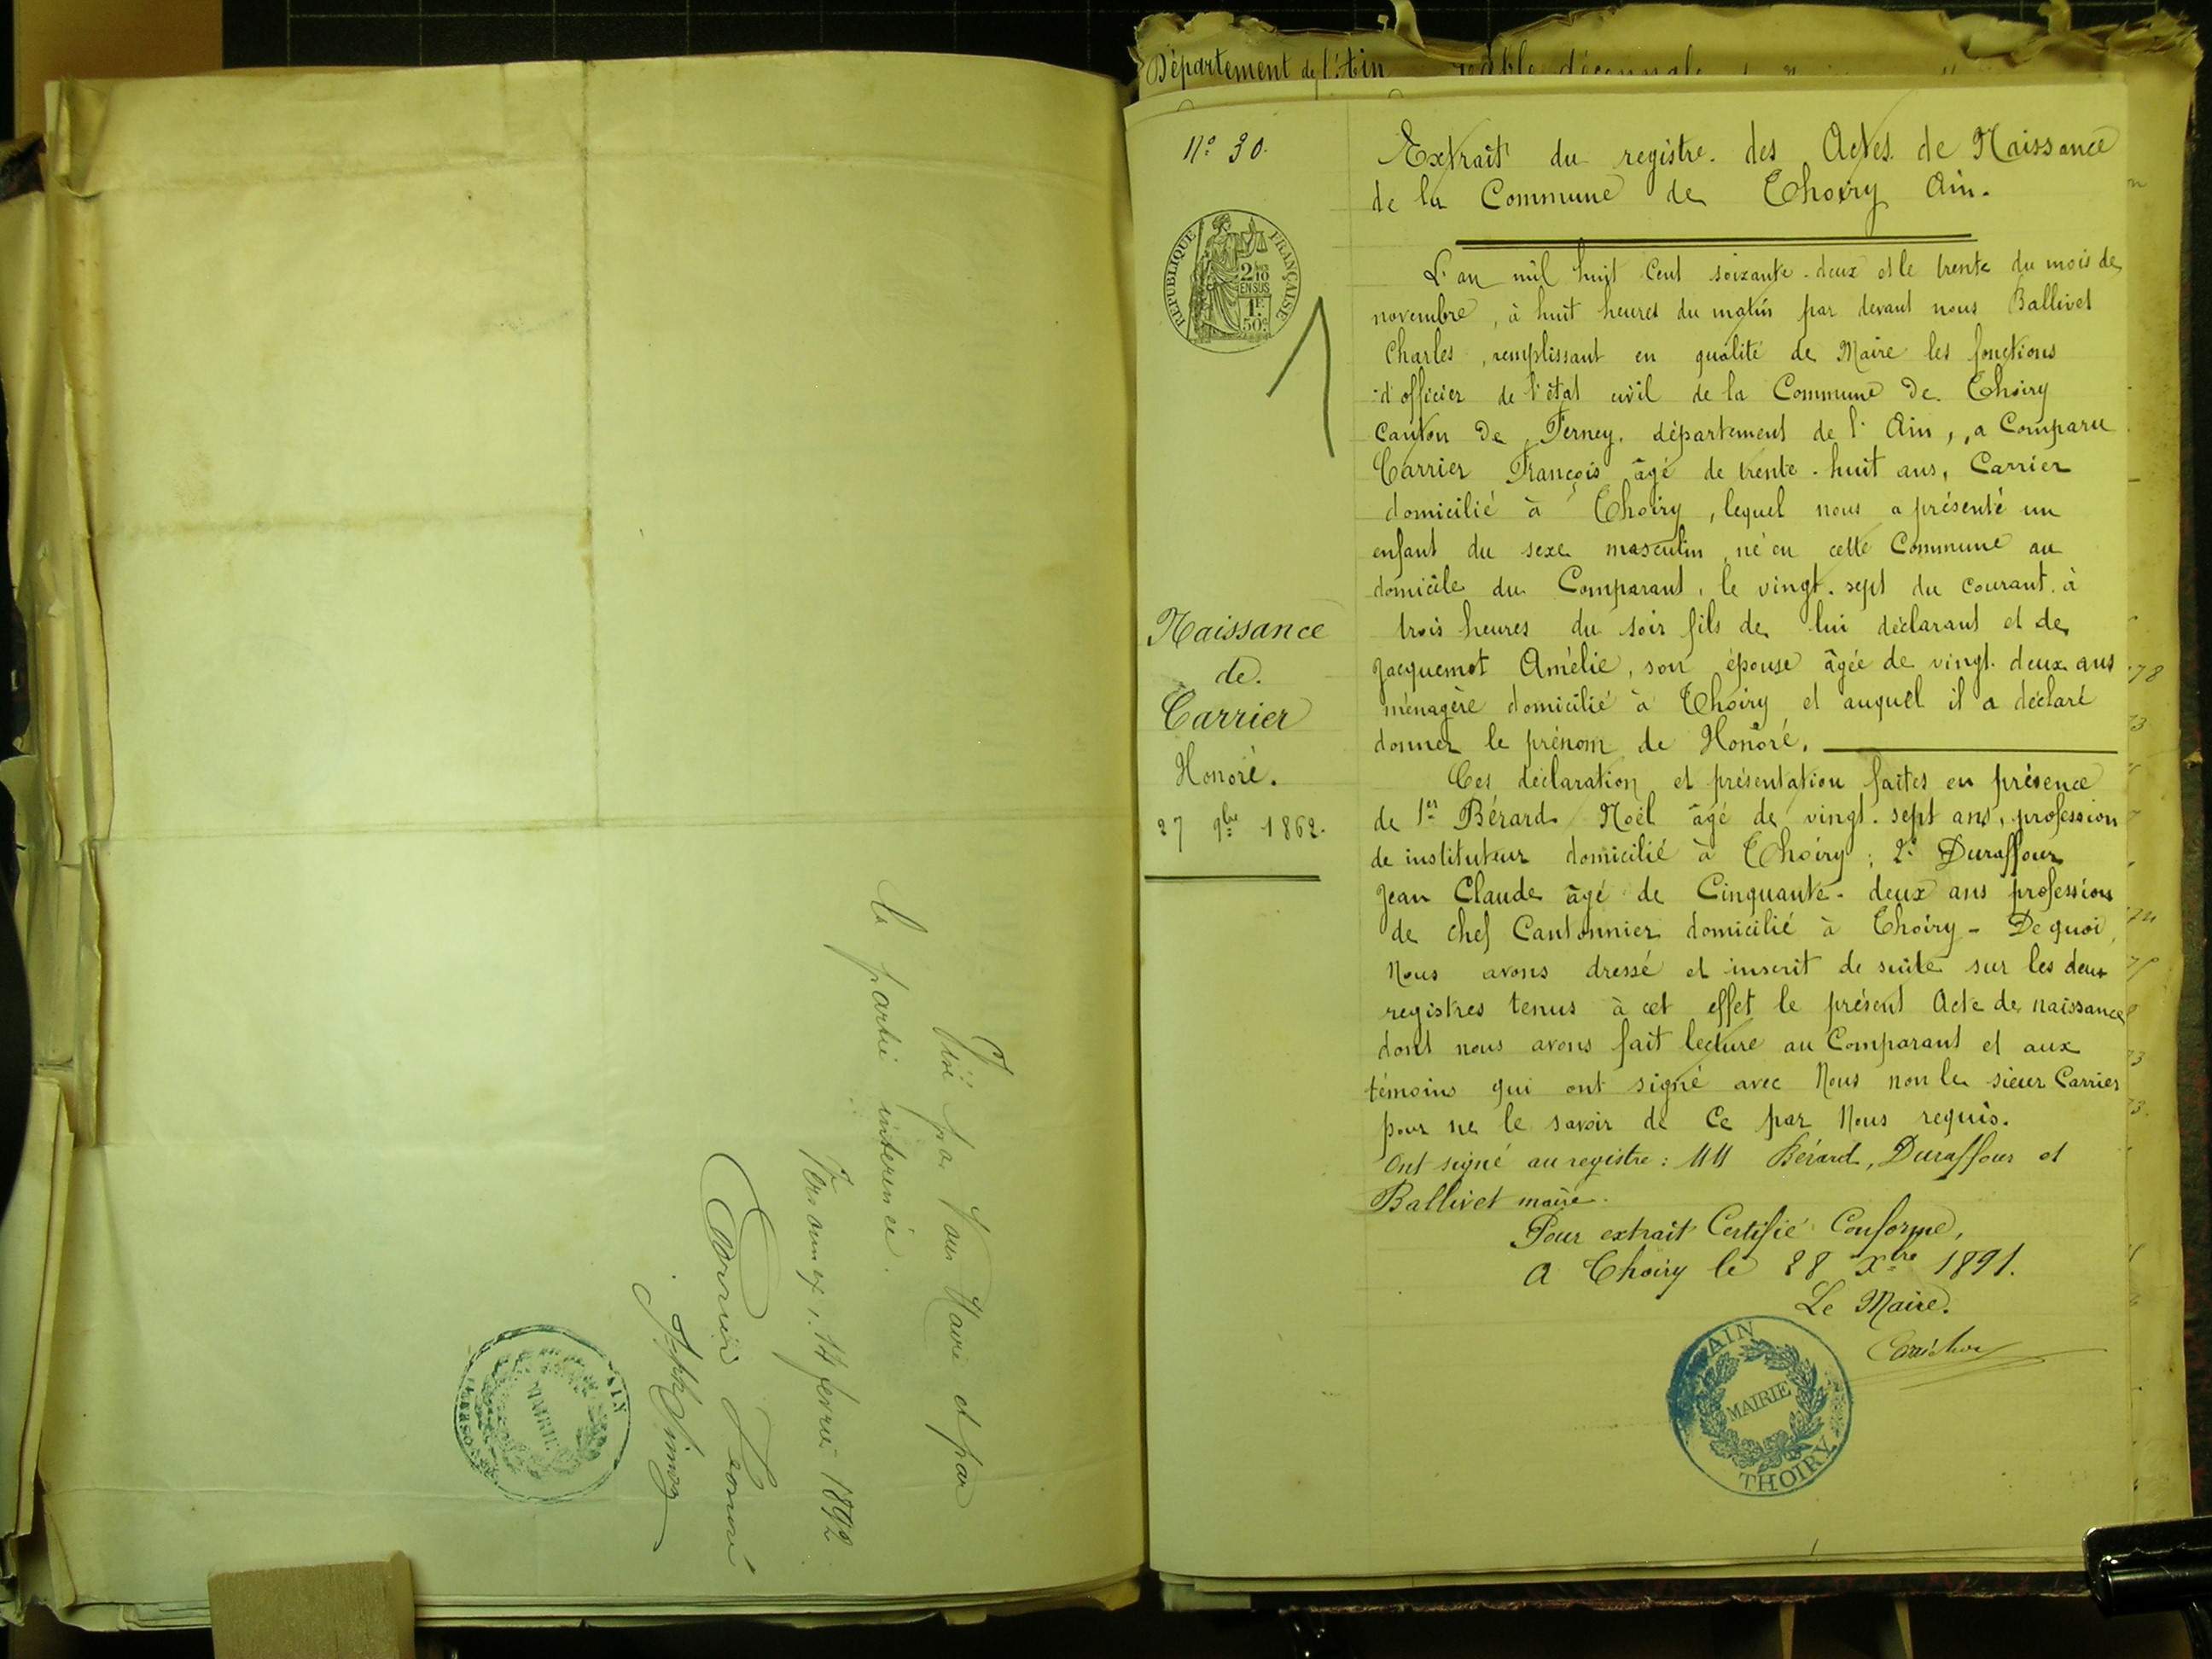 Visé par Nous Maire et par
la partie intérenée.
le 14 fevrier 1892
Carrier Honoré
AIN
MAIRIE
Département de l'Ain
Table décennale
N° 30.
Extrait du registre des Actes de Naissance
de la Commune de Thoiry Ain.
REPUBLIQUE FRANÇAISE
2/10
EN SUS
1F.
50c
L'an mil huit Cent soixante-deux et le trente du mois de
novembre, à huit heures du matin par devant nous Ballivet
Charles, remplissant en qualité de Maire les fonctions
d'officier de l'état civil de la Commune De Thoiry
Canton De Ferney, département de l'Ain, a Comparu
Carrier François âgé de trente-huit ans, Carrier
domicilié à Thoiry, lequel nous a présenté un
enfant du sexe masculin, né en cette Commune au
domicile du Comparant, le vingt-sept du courant à
trois heures du soir fils de lui déclarant et de
Jacquemot Amélie, son épouse âgée de vingt-deux ans
ménagère domicilié à Thoiry et auquel il a déclaré
donner le prénom de Honoré.
Naissance
de
Carrier
Honoré.
27 9bre 1862.
Ces déclaration et présentation faites en présence
de 1er Bérard Noël âgé de vingt-sept ans, profession
de instituteur domicilié à Thoiry; 2° Duraffour
Jean Claude âgé de Cinquante-deux ans profession
de chef Cantonnier domicilié à Thoiry - De quoi
Nous avons dressé et inscrit de suite sur les deux
registres tenus à cet effet le présent Acte de naissance
dont nous avons fait lecture au Comparant et aux
témoins qui ont signé avec Nous non le sieur Carrier
pour ne le savoir de Ce par Nous requis.
Ont signé au registre: MM Bérard, Duraffour et
Ballivet maire.
Pour extrait Certifié Conforme,
A Thoiry le 28 Xbre 1891.
Le Maire.
AIN
MAIRIE
THOIRY